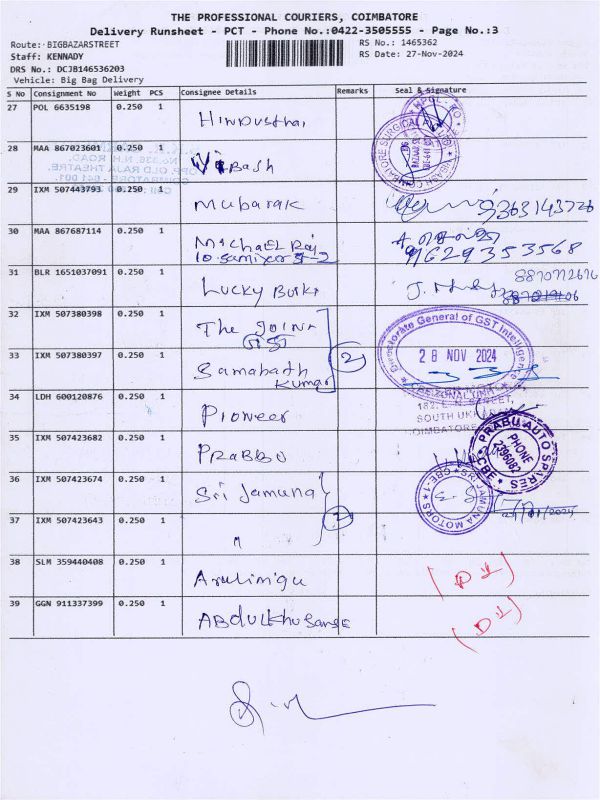 THE PROFESSIONAL COURIERS, COIMBATORE
Delivery Runsheet - PCT - Phone No.:0422-3505555 - Page No.:3
Route: BIGBAZARSTREET
RS No.: 1465362
Staff: KENNADY
RS Date: 27-Nov-2024
DRS No.: DCJB146536203
Vehicle: Big Bag Delivery
S No Consignment No Weight PCS Consignee Details Remarks Seal & Signature
27 POL 6635198 0.250 1 Hindusthan
28 MAA 867023601 0.250 1
No.336, N.H. ROAD,
OPP. OLD RAJA THEATRE,
COIMBATORE - 641 001.
29 IXM 507443793 0.250 1 Mubarak 9363143726
30 MAA 867687114 0.250 1 Michael Raj 9629353568
31 BLR 1651037091 0.250 1 Lucky
32 IXM 507380398 0.250 1 The Joint
Directorate General of GST Intelligence
28 NOV 2024
ZONAL UNIT
33 IXM 507380397 0.250 1 Sampath Kumar 2
34 LDH 600120876 0.250 1 Pioneer
182,
SOUTH UKKADAM
COIMBATORE
35 IXM 507423682 0.250 1 PRABBU
PRABU AUTO SPARES
PHONE
2396082
CBE
36 IXM 507423674 0.250 1 Sri Jamuna
SRI JAMUNA MOTORS
CBE-1
37 IXM 507423643 0.250 1 " 2
38 SLM 359440408 0.250 1
39 GGN 911337399 0.250 1